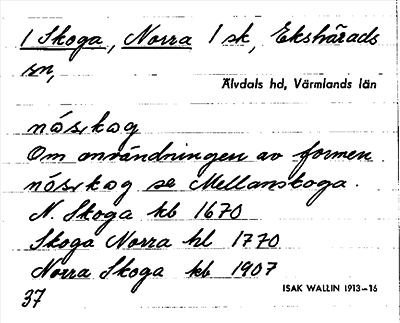 1 Skoga, Norra 1 sk, Ekshärads
sn,
Älvdals hd, Värmlands län
nɷ́s,kɷg
Om användningen av formen
nɷ́s,kɷg se Mellanskoga.
N. Skoga kb 1670
Skoga Norra hl 1770
Norra Skoga kb 1907
37
ISAK WALLIN 1913–16